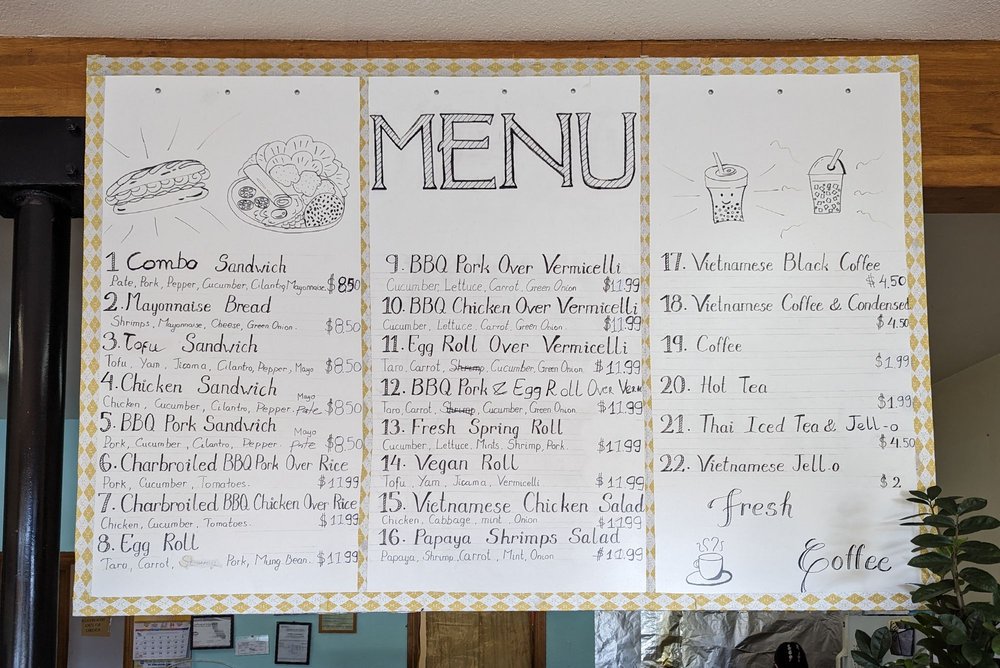 MENU
1 Combo Sandwich
Pate, Pork, Pepper, Cucumber, Cilantro, Mayonnaise. $8.50
2. Mayonnaise Bread
Shrimps, Mayonnaise, Cheese, Green Onion. $8.50
3. Tofu Sandwich
Tofu, Yam, Jicama, Cilantro, Pepper, Mayo $8.50
4. Chicken Sandwich
Mayo
Chicken, Cucumber, Cilantro, Pepper. Pate $8.50
5. BBQ Pork Sandwich
Mayo
Pork, Cucumber, Cilantro, Pepper. Pate $8.50
6. Charbroiled BBQ Pork Over Rice
Pork, Cucumber, Tomatoes. $11.99
7. Charbroiled BBQ Chicken Over Rice
Chicken, Cucumber, Tomatoes. $11.99
8. Egg Roll
Taro, Carrot, Shrimp, Pork, Mung Bean. $11.99
9. BBQ Pork Over Vermicelli
Cucumber, Lettuce, Carrot, Green Onion $11.99
10. BBQ Chicken Over Vermicelli
Cucumber, Lettuce, Carrot, Green Onion. $11.99
11. Egg Roll Over Vermicelli
Taro, Carrot, Shrimp, Cucumber, Green Onion. $11.99
12. BBQ Pork & Egg Roll Over Verm
Taro, Carrot, Shrimp, Cucumber, Green Onion. $11.99
13. Fresh Spring Roll
Cucumber, Lettuce, Mints, Shrimp, Pork. $11.99
14. Vegan Roll
Tofu, Yam, Jicama, Vermicelli $11.99
15. Vietnamese Chicken Salad
Chicken, Cabbage, mint, Onion $11.99
16. Papaya Shrimps Salad
Papaya, Shrimp, Carrot, Mint, Onion $11.99
17. Vietnamese Black Coffee
$4.50
18. Vietnamese Coffee & Condensed
$4.50
19. Coffee
$1.99
20. Hot Tea
$1.99
21. Thai Iced Tea & Jell-o
$4.50
22. Vietnamese Jell-o
$2
Fresh
Coffee